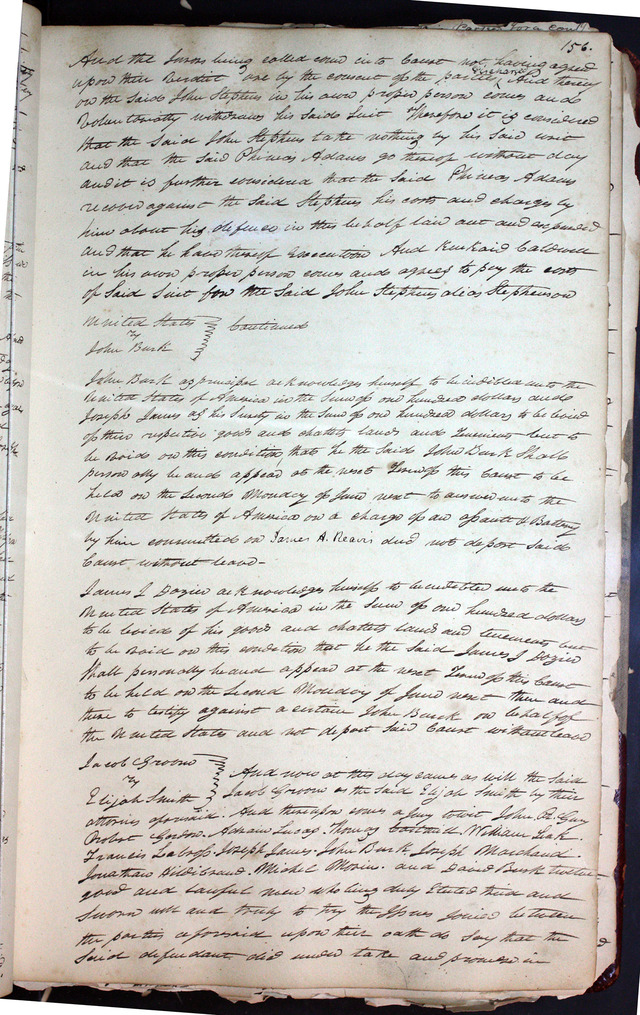 156.
And the Jurors being called come in to Court not having agreed
upon their Verdict are by the consent of the parties discharged And thereup
on the Said John Stephens in his own proper person comes and
Voluntarily withdraws his Said Suit Therefore it is considered
that the Said John Stephens take nothing by his Said writ
and that the Said Phineas Adams go thereof without day
and it is further considered that the Said Phineas Adams
recover against the Said Stephens his costs and charges by
him about his defence in this behalf lain out and expended
and that he have thereof Execution And Kinkaid Caldwell
in his own proper person comes and agrees to pay the costs
of Said Suit for the Said John Stephens alias Stephenson
United States
vs Continued
John Burk
John Burk as principal acknowledges himself to be indebted unto the
United States of America in the Sum of one hundred dollars and
Joseph James as his Surety in the Sum of one hundred dollars to be levied
of their respective goods and chattels lands and Tenements but to
be Void on this condition, that he the Said John Burk Shall
personally be and appear at the next Term of this Court to be
held on the Second Monday of June next to answer unto the
United States of America on a charge of an assault & Battery
by him committed on James A. Reavis and not depart Said
Court without leave -
James J Dozier acknowledges himself to be indebted unto the
United States of America in the Sum of one hundred dollars
to be levied of his goods and chattels lands and tenements but
to be Void on this condition that he the Said James J Dozier
Shall personally be and appear at the next Term of this Court
to be held on the Second Monday of June next then and
there to testify against a certain John Burk on behalf of
the United States and not depart Said Court without leave
Jacob Groom
vs And now at this day comes as well the Said
Elijah Smith Jacob Groom as the Said Elijah Smith by their
attornies aforesaid. And thereupon comes a Jury towit John
Robert Gordon. Adam Lucas. Thomas William
Francis Joseph James. John Burk Joseph Marchand.
Jonathan Hildibrand. Michel Morin. and David Burk twelve
good and lawful men who being duly Elected tried and
Sworn well and truly to try the Issue joined between
the parties aforesaid upon their oath do Say that the
Said defendant did under take and promise in